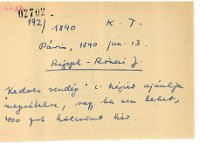 02702
192/1890 K. T.
Páris, 1890 jan. 13.
Rippl-Rónai J.
"Kedves vendég" c. képét ajánlja
megvételre, vagy ha nem lehet,
400 frt kölcsönt kér.